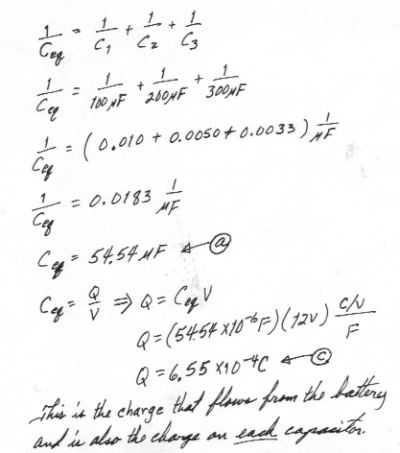 1/Ceq = 1/C1 + 1/C2 + 1/C3
1/Ceq = 1/100μF + 1/200μF + 1/300μF
1/Ceq = (0.010 + 0.0050 + 0.0033) 1/μF
1/Ceq = 0.0183 1/μF
Ceq = 54.54 μF ← ⓐ
Ceq = Q/V ⇒ Q = Ceq V
Q = (54.54 x10⁻⁶F)(12V) C/V/F
Q = 6.55 x10⁻⁴C ← ⓒ
This is the charge that flows from the battery
and is also the charge on each capacitor.